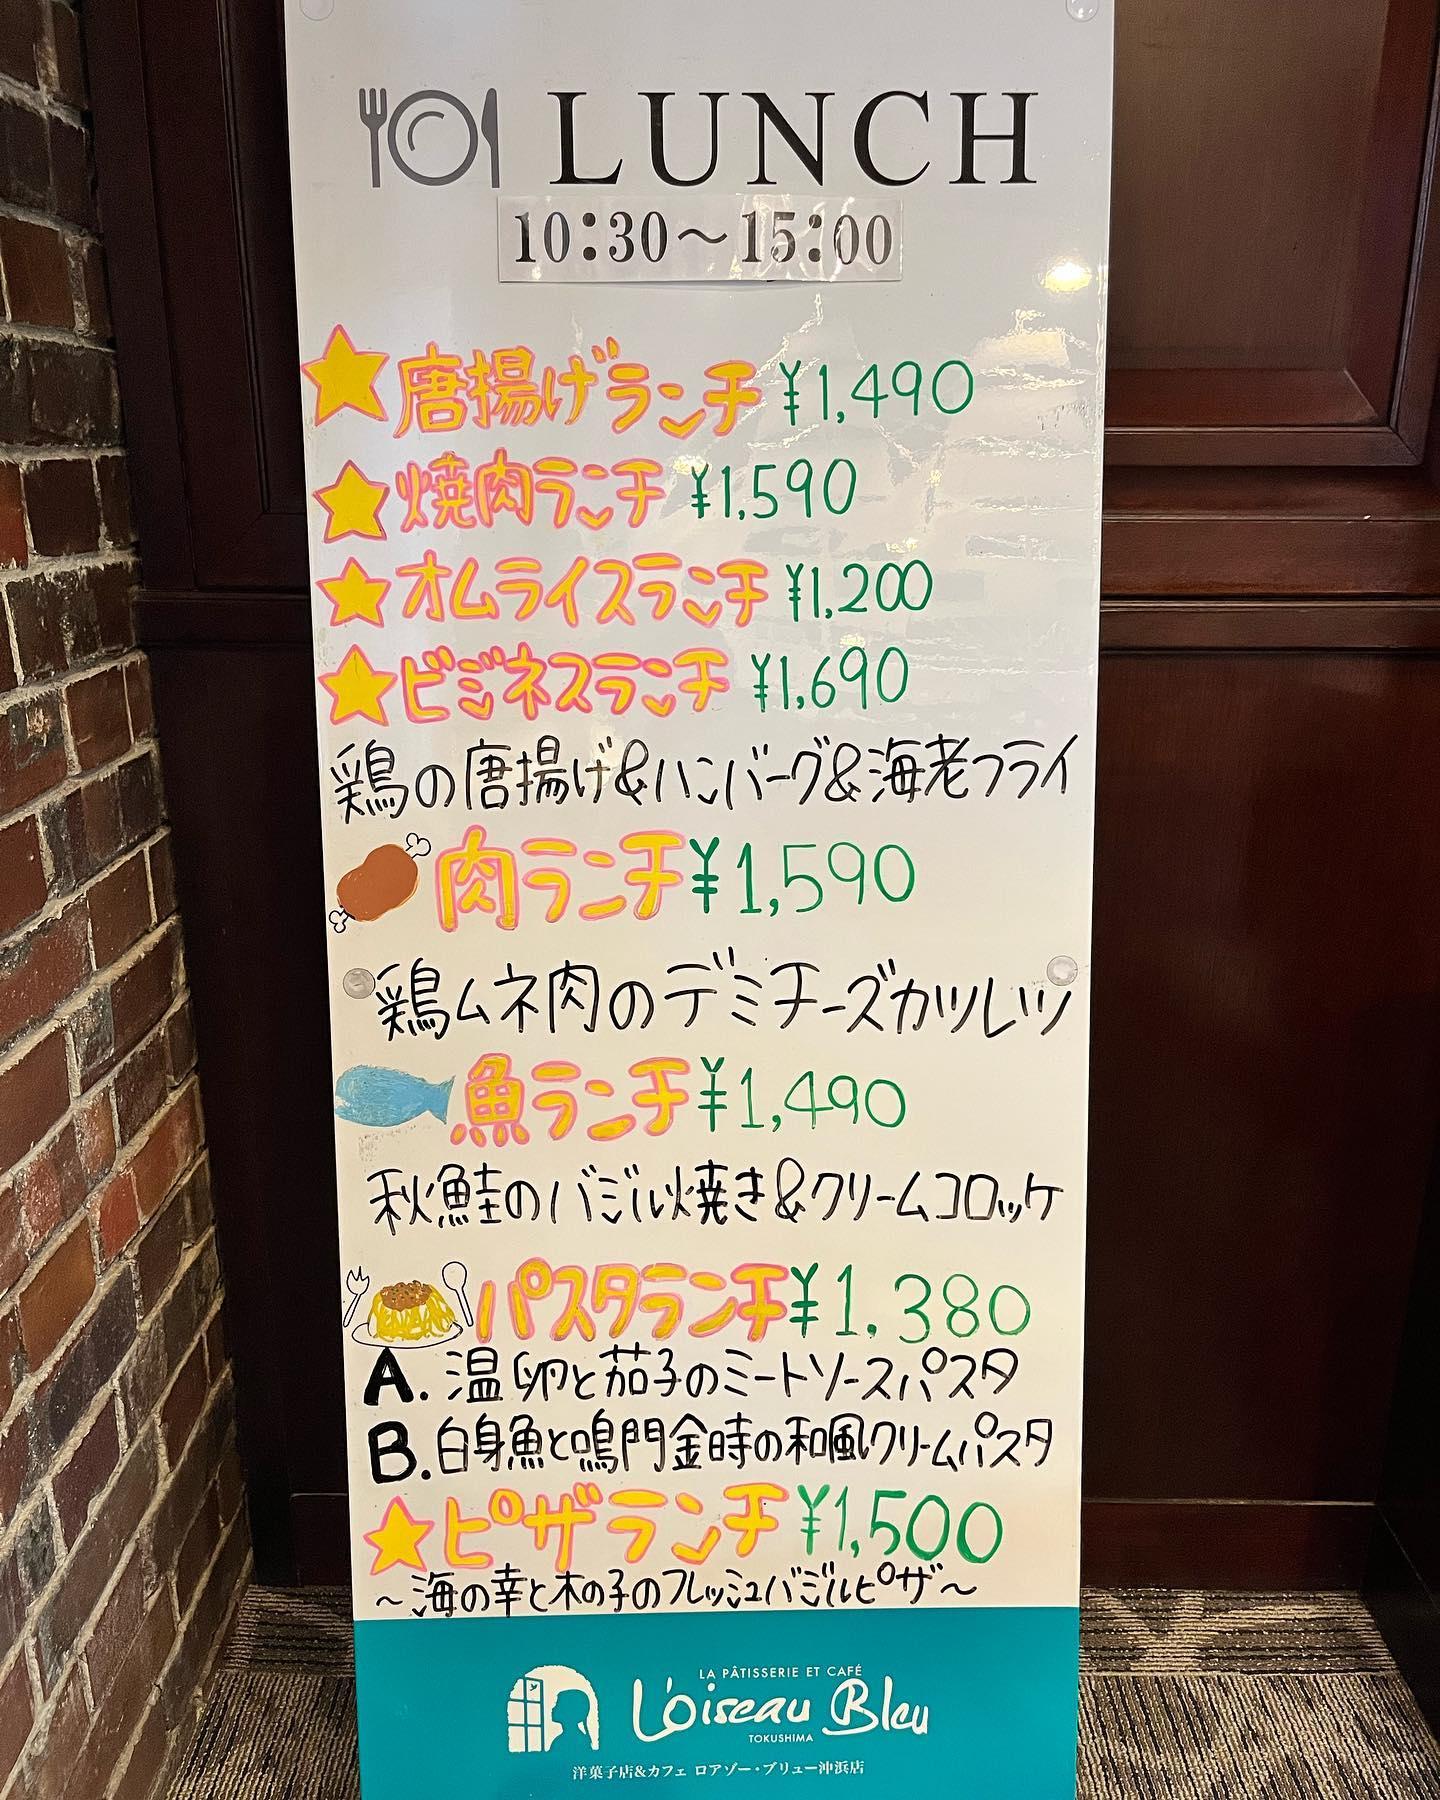 LUNCH
10:30～15:00
唐揚げランチ ¥1,490
焼肉ランチ ¥1,590
オムライスランチ ¥1,200
ビジネスランチ ¥1,690
鶏の唐揚げ&ハンバーグ&海老フライ
肉ランチ ¥1,590
鶏ムネ肉のデミチーズカツレツ
魚ランチ ¥1,490
秋鮭のバジル焼き&クリームコロッケ
パスタランチ ¥1.380
A. 温卵と茄子のミートソースパスタ
B. 白身魚と鳴門金時の和風クリームパスタ
ピザランチ ¥1,500
～海の幸と木の子のフレッシュバジルピザ～
LA PÂTISSERIE ET CAFÉ
L'oiseau Bleu
TOKUSHIMA
洋菓子店&カフェ ロアゾー・ブリュー沖浜店